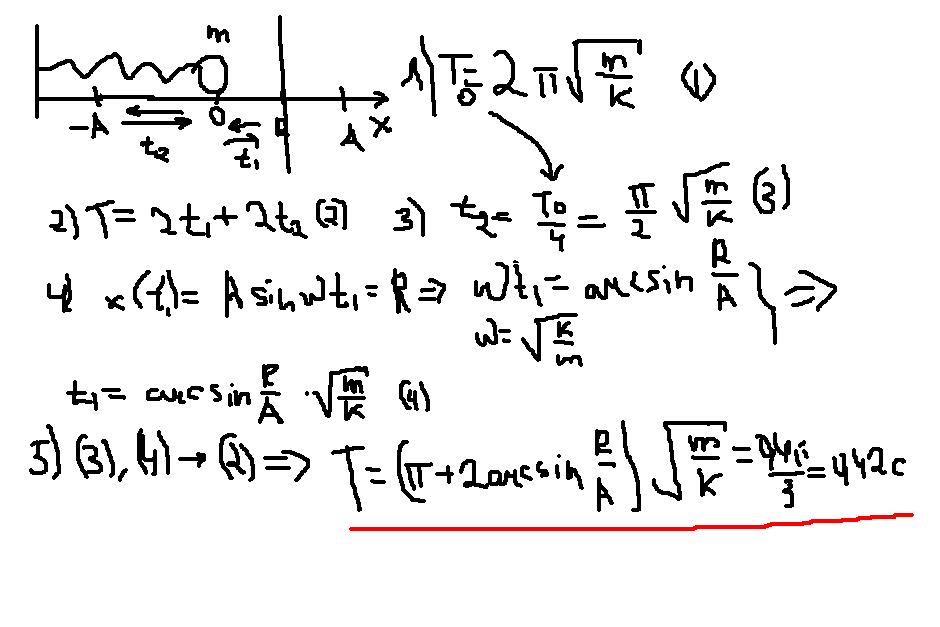 m
-A O A x
t₂ t₁
1) T₀ = 2π√(m/k) (1)
2) T = 2t₁ + 2t₂ (2) 3) t₂ = T₀/4 = π/2 √(m/k) (3)
4) x(t₁) = A sin ωt₁ = ℓ ⇒ ωt₁ = arcsin ℓ/A } ⇒
ω = √(k/m)
t₁ = arcsin ℓ/A · √(m/k) (4)
5) (3), (4) → (2) ⇒ T = (π + 2arcsin ℓ/A) √(m/k) =
= 442c